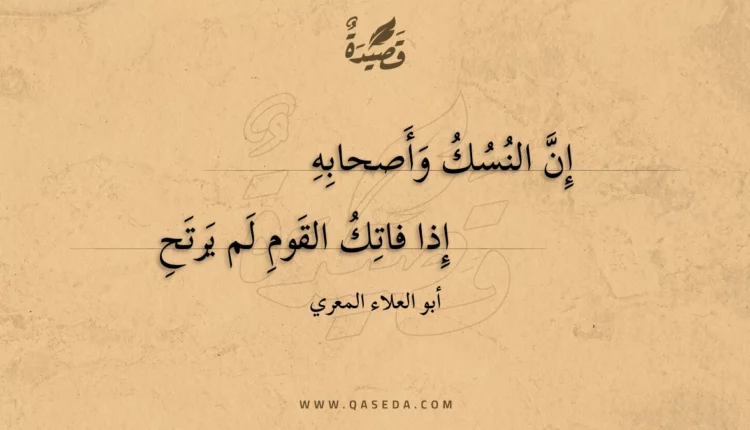 قَصِيْدَةٌ
إِنَّ النُسُكُ وَأَصحابِهِ
إِذا فاتِكُ القَومِ لَم يَرتَحِ
أبو العلاء المعري
WWW.QASEDA.COM